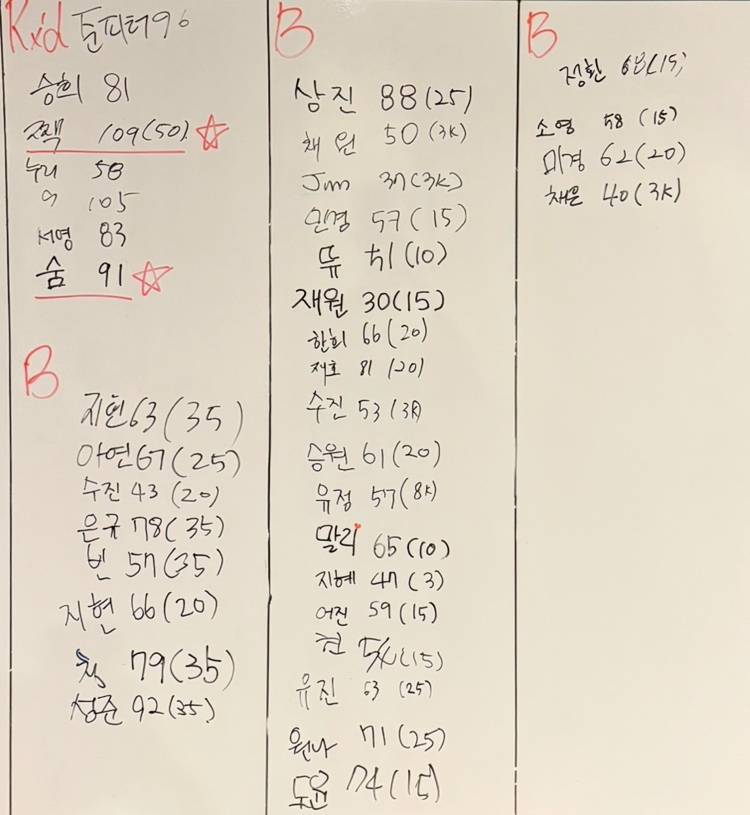 Kid 준피터96
승희 81
쪼잭 109(50)
누리 58
어 105
서영 83
숨 91
B
지현 63(35)
아연 67(25)
수진 43 (20)
은규 78(35)
빈 57(35)
지현 66(20)
79(35)
성준 92(35)
B
상진 88(25)
채원 50(3K)
Jim 37(3K)
민경 57(15)
뜌 51(10)
재원 30(15)
한희 66(20)
재호 81(20)
수진 53(3K)
승원 61(20)
유정 57(8K)
말리 65(10)
지혜 47(3)
어진 59(15)
현 54(15)
유진 63 (25)
원나 71(25)
도윤 74(15)
B
정환 68(15)
소영 58 (15)
미경 62(20)
채은 40(3K)